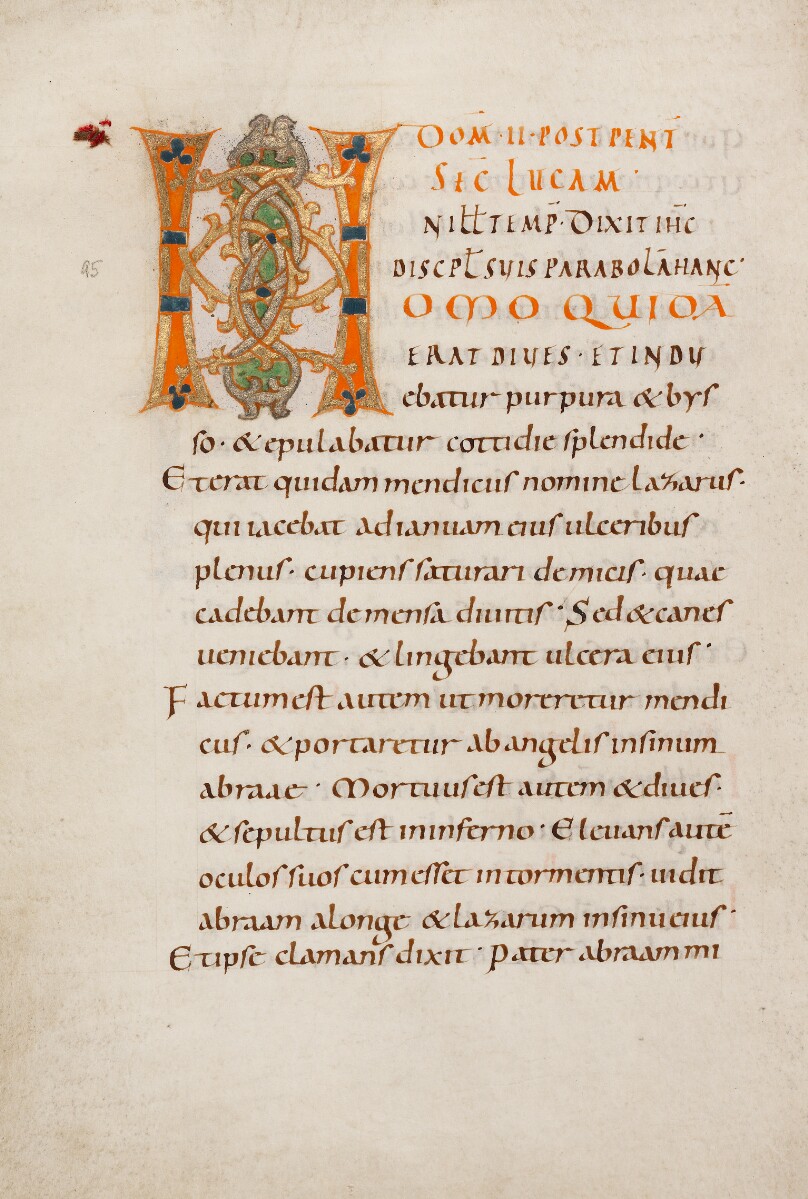 DOM̅·II·POST PENT̅
SEC̅ LUCAM·
H
IN ILL TEMP̅·DIXIT IHC̅
DISCPL̅ SUIS PARABOLA̅ HANC·
OMO QUIDA̅
ERAT DIUES·ET INDU
ebatur purpura & bys
so·&epulabatur cottidie splendide·
Et erat quidam mendicus nomine lazarus·
qui iacebat ad ianuam eius ulceribus
plenus·cupiens saturari de micis·quae
cadebant de mensa diuitis·Sed & canes
ueniebant·& lingebant ulcera eius·
Factum est autem ut moreretur mendi
cus·& portaretur ab angelis in sinum
abraae·Mortuus est autem & diues·
& sepultus est in inferno·Eleuans aute̅
oculos suos cum esset in tormentis·uidit
abraam a longe & lazarum in sinu eius·
Et ipse clamans dixit·Pater abraam mi
95